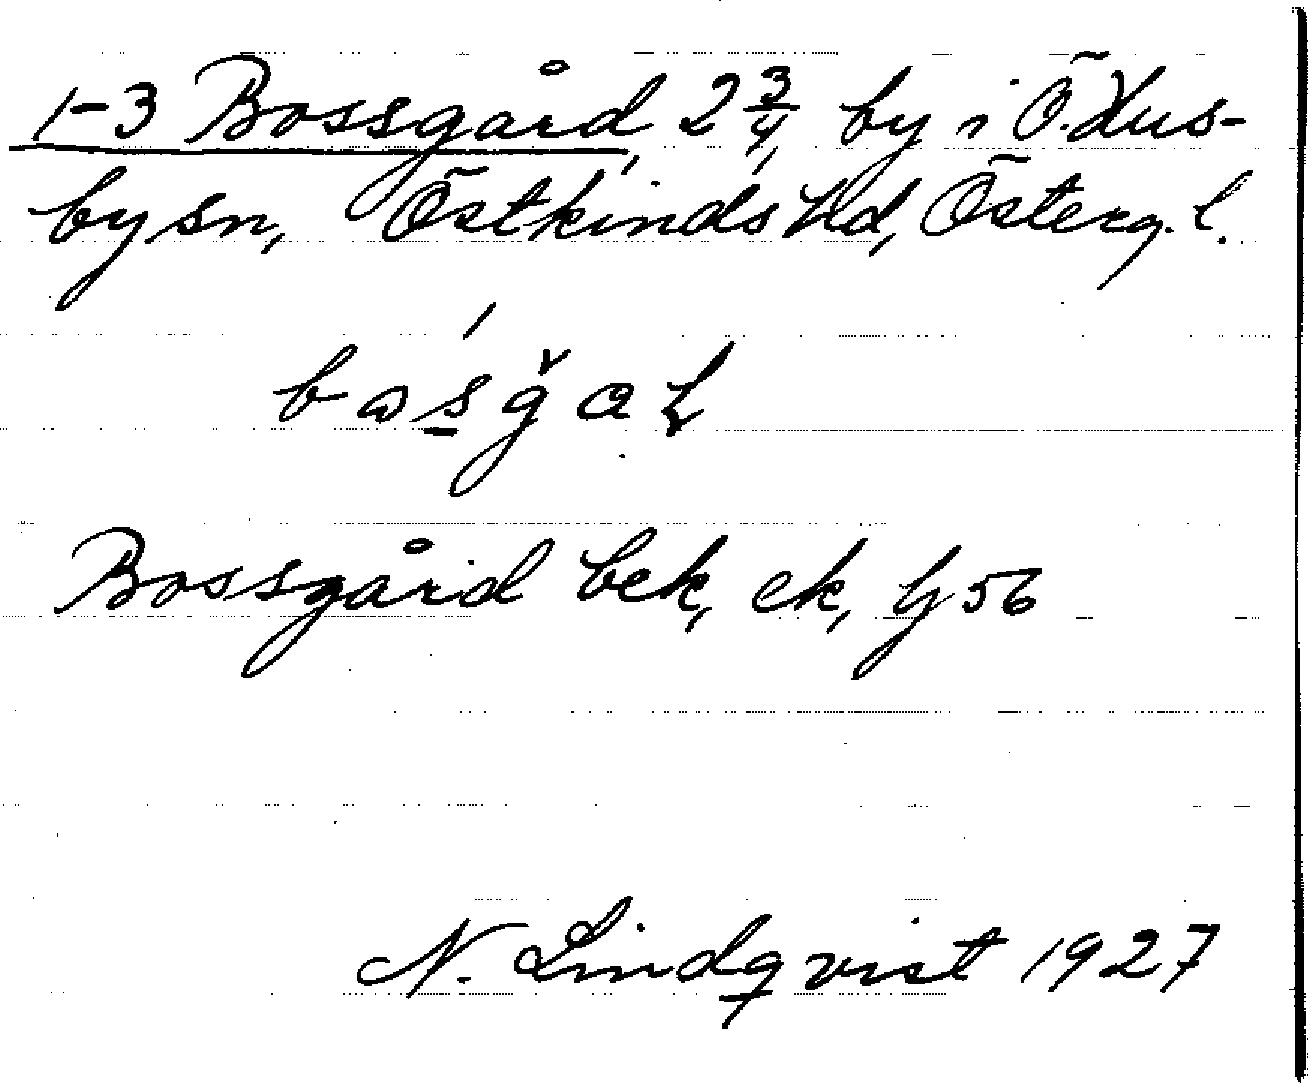 1-3 Bossgård, 2 3/4 by i Ö. Hus-
by sn, Östkinds hd, Österg. l.
Bossgård bek, ek, Gj 56
N. Lindqvist 1927